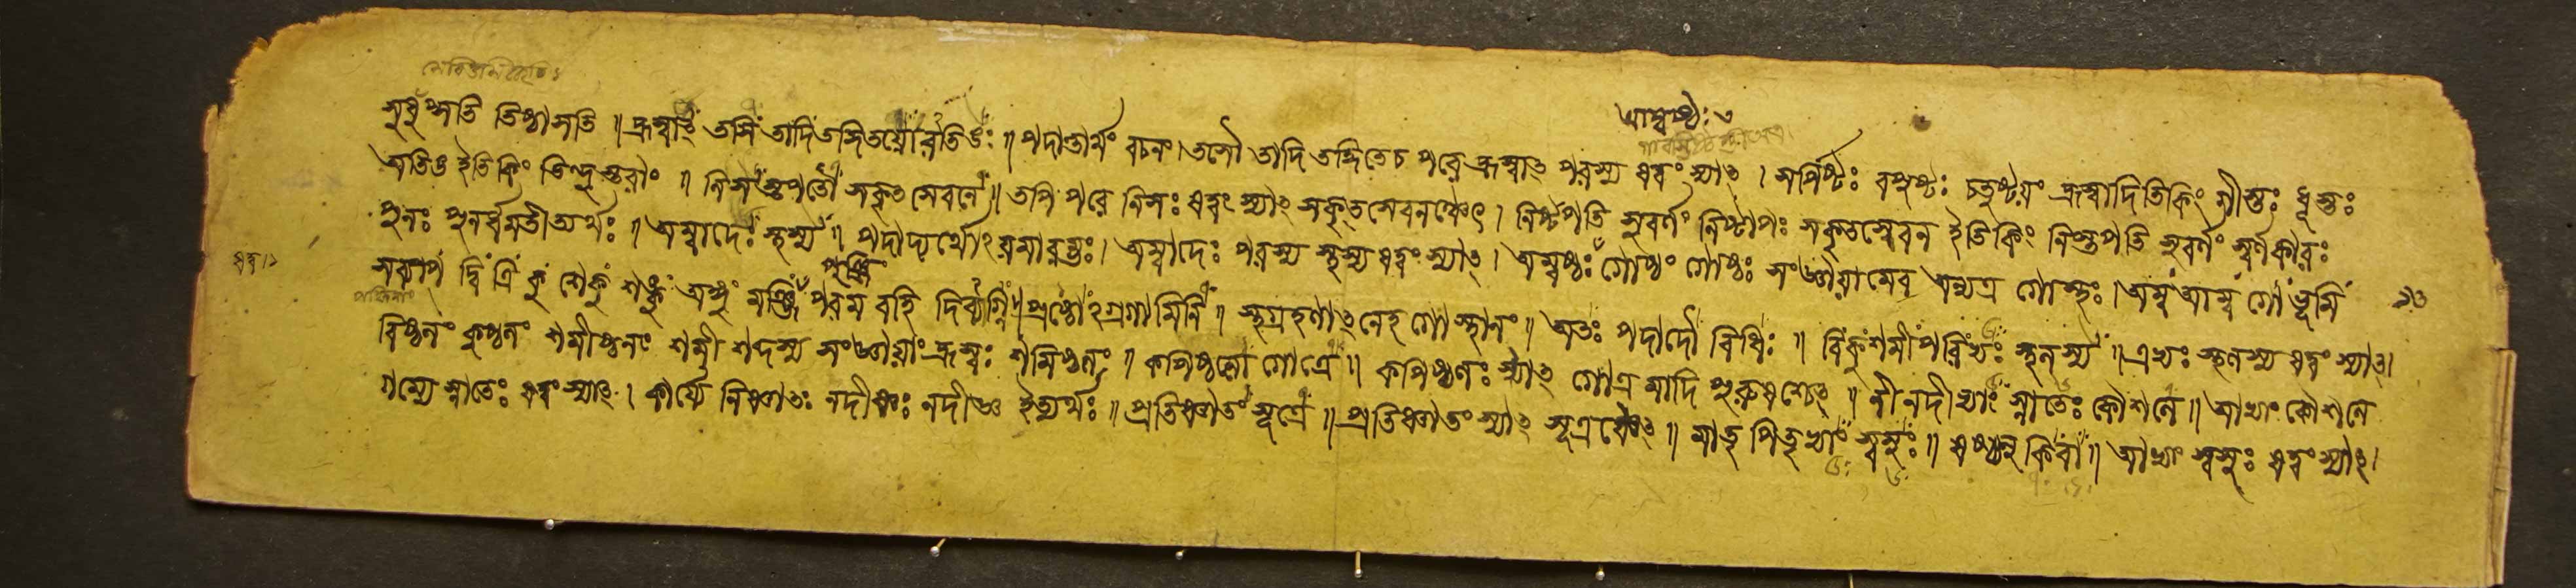 সুষুপ্সতি তিষ্ঠাসতি ॥ হ্রস্বাৎ তসি তাদি তদ্ধিতয়োরতিঙঃ ॥ পদান্তার্থং বচনং। তসৌ তাদি তদ্ধিতেচ পরে হ্রস্বাৎ পরস্য ষত্বং স্যাৎ । সর্পিষ্টঃ বপুষ্টঃ চতুষ্টয়ং হ্রস্বাদিতি কিং গীস্তঃ ধূস্তঃ
অতিঙ ইতি কিং ভিন্দুস্তরাং ॥ নিসস্তপতৌ সকৃত সেবনে ॥ তপি পরে নিসঃ ষত্বং স্যাৎ সকৃতসেবনঞ্চেৎ । নিষ্টপতি সুবর্ণং নিষ্টাপঃ সকৃতসেবন ইতি কিং নিস্তপতি সুবর্ণং স্বর্ণকারঃ
পুনঃ পুনর্ধমতীত্যর্থঃ ॥ অম্বাদেঃ স্থস্য ॥ পদাদ্যর্থোঽয়মারম্ভঃ। অম্বাদেঃ পরস্য স্থস্য ষত্বং স্যাৎ । অম্বষ্ঠঃ গোষ্ঠং গোষ্ঠঃ সংজ্ঞায়ামেব অন্যত্র গোস্থঃ । অম্ব আম্ব গো ভূমি
সব্যাপ দ্বি ত্রি কু শেকু শঙ্কু অঙ্গু মঞ্জি পুঞ্জি পরম বর্হি দিব্যগ্নি । প্রষ্ঠোঽগ্রগামিনি ॥ স্থগ্রহণাৎ নেহ গোস্থানং ॥ অতঃ পদাদৌ বিধিঃ ॥ বিকুশমীপরিভ্যঃ স্থলস্য ॥ এভ্যঃ স্থলস্য ষত্বং স্যাৎ।
বিষ্ঠলং কুষ্ঠলং শমীষ্ঠলং শমী শব্দস্য সংজ্ঞায়াং হ্রস্বঃ শমিষ্ঠলং ॥ কপিষ্ঠলো গোত্রে ॥ কপিষ্ঠলঃ স্যাৎ গোত্র মাদি পুরুষশ্চেৎ ॥ নী নদীভ্যাং স্নাতেঃ কৌশলে ॥ আভ্যাং কৌশলে
গম্যে স্নাতেঃ ষত্বং স্যাৎ । কার্যে নিষ্ণাতঃ নদীষ্ণঃ নদীজ্ঞ ইত্যর্থঃ ॥ প্রতিষ্ণাতং সূত্রে ॥ প্রতিষ্ণাতং স্যাৎ সূত্রঞ্চেৎ ॥ মাতৃ পিতৃভ্যাং স্বসুঃ ॥ ষষ্ঠ্যলুকি বা ॥ আভ্যাং স্বসুঃ ষত্বং স্যাৎ।